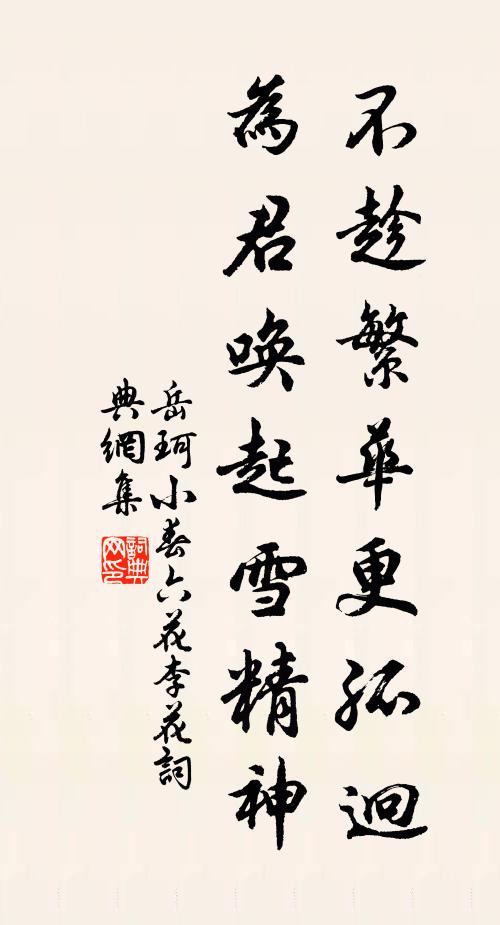 不趁繁華更孤迥
為君喚起雪精神
岳珂小春六花李花詞
典網集
詞典
网印